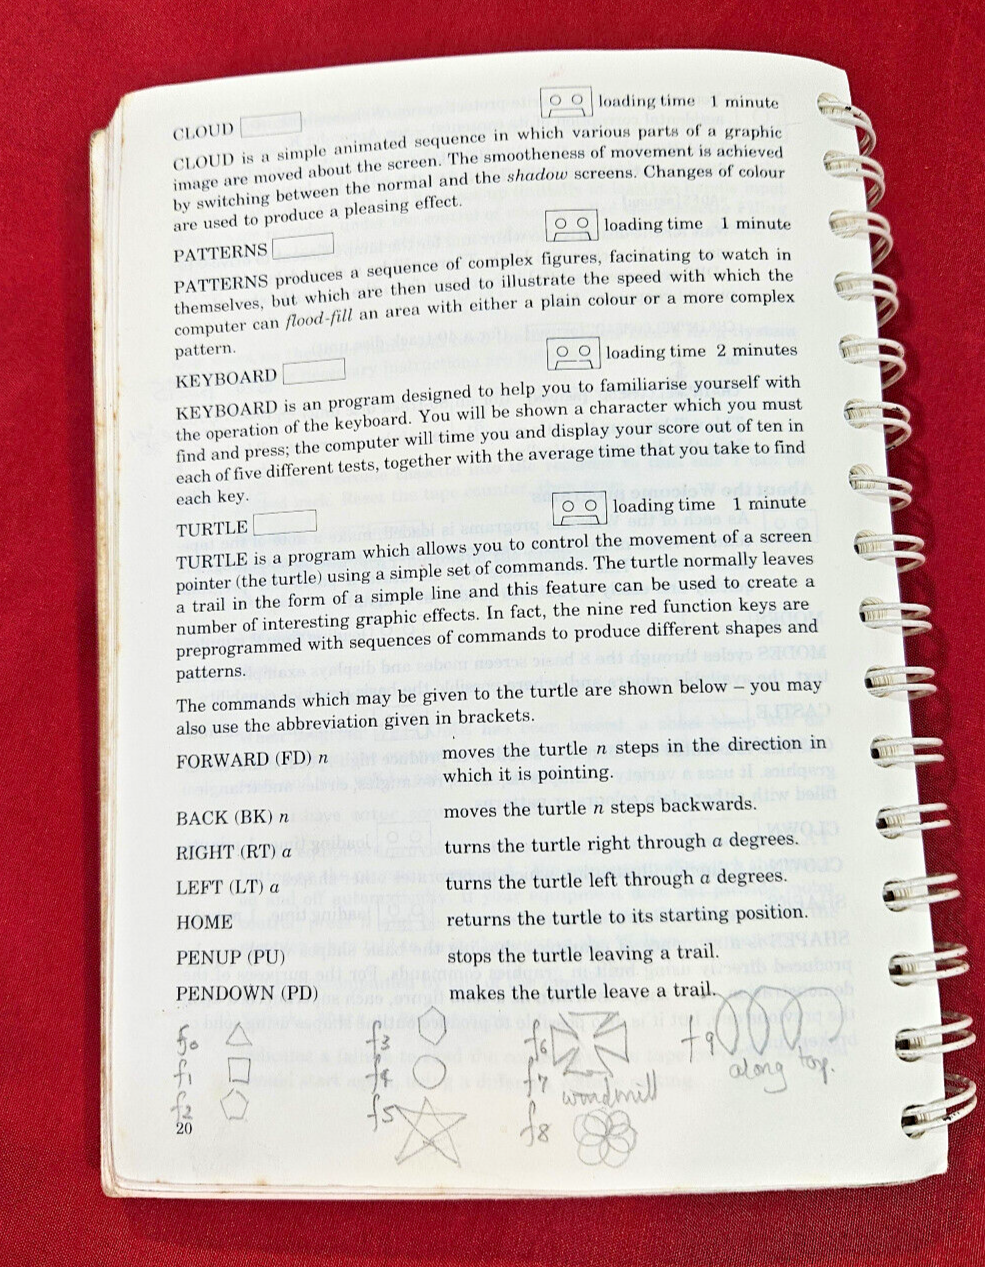 CLOUD loading time 1 minute
CLOUD is a simple animated sequence in which various parts of a graphic
image are moved about the screen. The smootheness of movement is achieved
by switching between the normal and the shadow screens. Changes of colour
are used to produce a pleasing effect.
PATTERNS loading time 1 minute
PATTERNS produces a sequence of complex figures, facinating to watch in
themselves, but which are then used to illustrate the speed with which the
computer can flood-fill an area with either a plain colour or a more complex
pattern.
KEYBOARD loading time 2 minutes
KEYBOARD is an program designed to help you to familiarise yourself with
the operation of the keyboard. You will be shown a character which you must
find and press; the computer will time you and display your score out of ten in
each of five different tests, together with the average time that you take to find
each key.
TURTLE loading time 1 minute
TURTLE is a program which allows you to control the movement of a screen
pointer (the turtle) using a simple set of commands. The turtle normally leaves
a trail in the form of a simple line and this feature can be used to create a
number of interesting graphic effects. In fact, the nine red function keys are
preprogrammed with sequences of commands to produce different shapes and
patterns.
The commands which may be given to the turtle are shown below – you may
also use the abbreviation given in brackets.
FORWARD (FD) n moves the turtle n steps in the direction in
which it is pointing.
BACK (BK) n moves the turtle n steps backwards.
RIGHT (RT) a turns the turtle right through a degrees.
LEFT (LT) a turns the turtle left through a degrees.
HOME returns the turtle to its starting position.
PENUP (PU) stops the turtle leaving a trail.
PENDOWN (PD) makes the turtle leave a trail.
f0 f3 f6 f9
f1 f4 f7 windmill along top.
f2 f5 f8
20